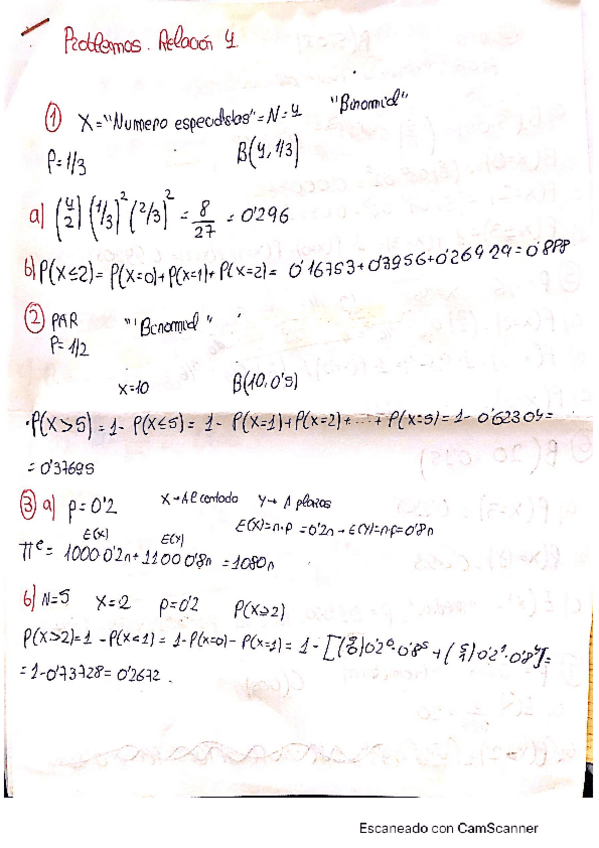 Problemas. Relación 4
① X="Numero especialistas"=N=4 "Binomial"
P=1/3 B(4,1/3)
a) (4 2) (1/3)² (2/3)² = 8/27 = 0'296
b) P(X≤2)= P(X=0)+P(X=1)+P(X=2)= 0'16753+0'3956+0'26929=0'888
② PAR "Binomial"
P=1/2
x=10 B(10,0'5)
P(X>5)=1- P(X≤5)= 1- P(X=1)+P(X=2)+...+P(X=5)=1- 0'62304=
= 0'37695
③ a) p=0'2 X→Al contado Y→ A plazos
E(X)=n·p =0'2n → E(Y)=n·p=0'8n
E(X) E(Y)
πe= 1000·0'2n+1100·0'8n =1080n
b) N=5 X=2 p=0'2 P(X≥2)
P(X≥2)=1-P(X<1)= 1-P(X=0)-P(X=1)= 1-[(5 0)0'2⁰·0'8⁵+(5 1)0'2¹·0'8⁴]=
=1-0'73728=0'2672.
Escaneado con CamScanner